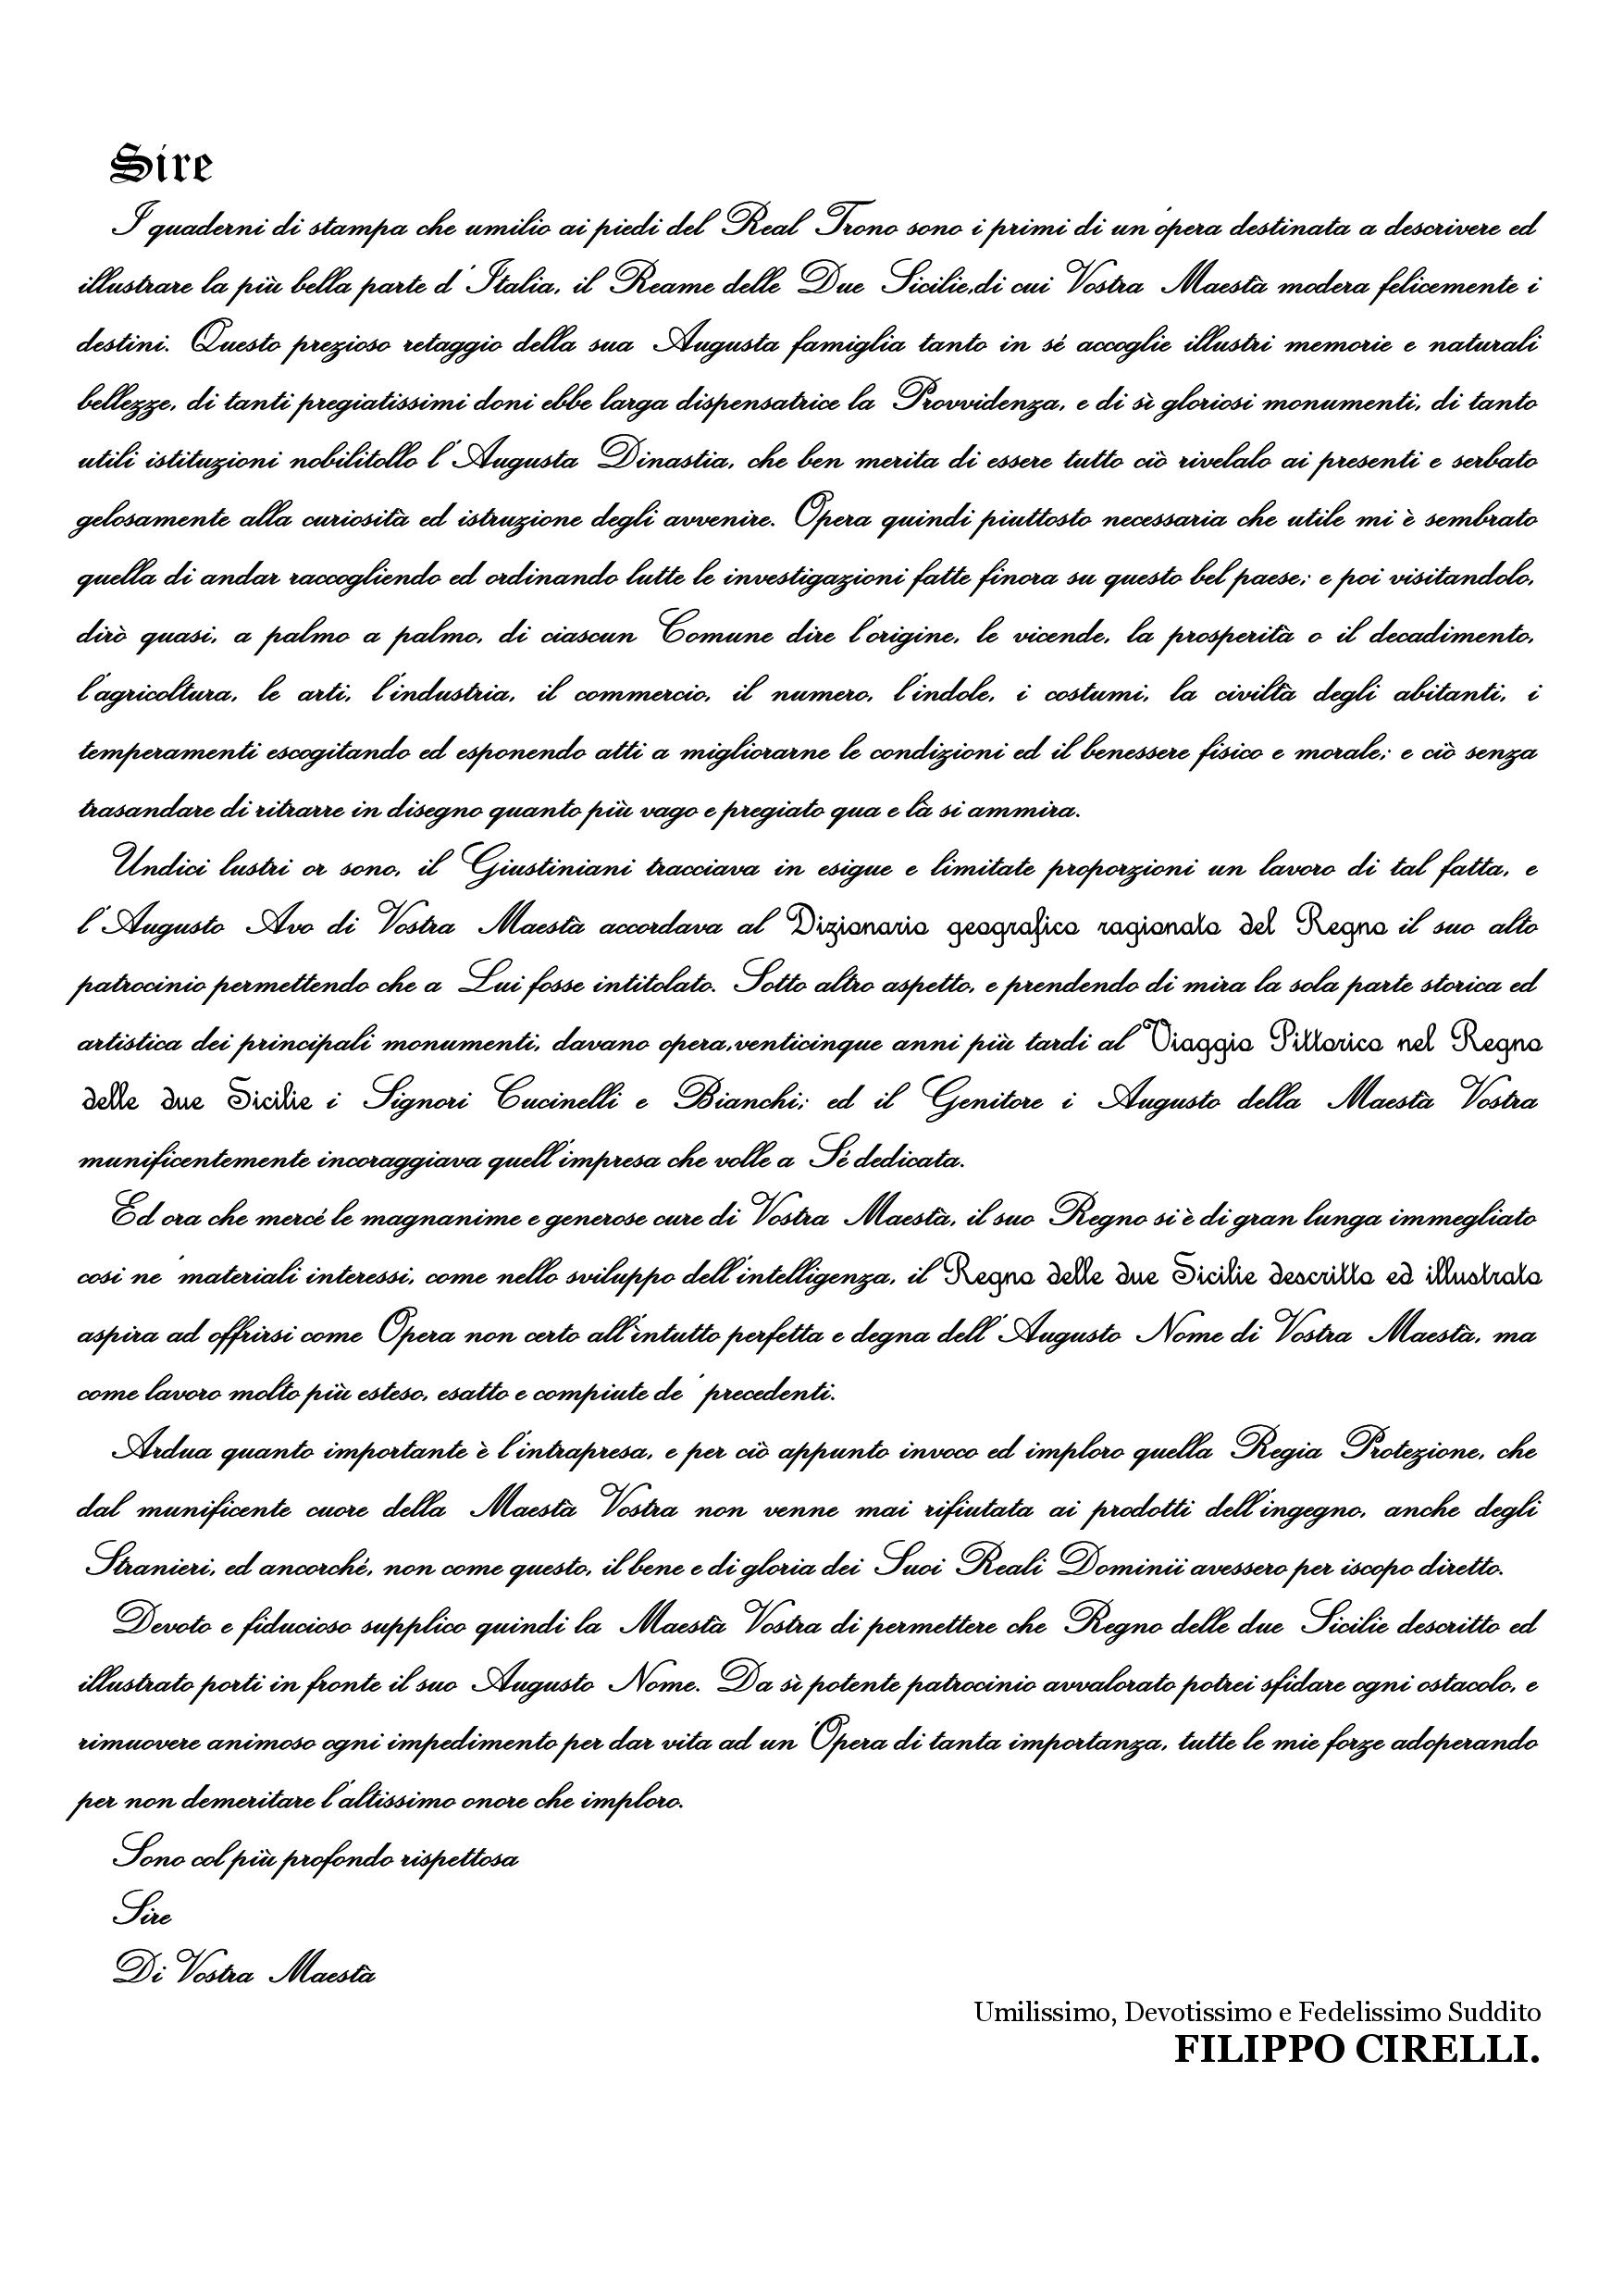 Sire
I quaderni di stampa che umilio ai piedi del Real Trono sono i primi di un'opera destinata a descrivere ed
illustrare la più bella parte d'Italia, il Reame delle Due Sicilie,di cui Vostra Maestà modera felicemente i
destini. Questo prezioso retaggio della sua Augusta famiglia tanto in sé accoglie illustri memorie e naturali
bellezze, di tanti pregiatissimi doni ebbe larga dispensatrice la Provvidenza, e di sì gloriosi monumenti, di tanto
utili istituzioni nobilitollo l'Augusta Dinastia, che ben merita di essere tutto ciò rivelalo ai presenti e serbato
gelosamente alla curiosità ed istruzione degli avvenire. Opera quindi piuttosto necessaria che utile mi è sembrato
quella di andar raccogliendo ed ordinando lutte le investigazioni fatte finora su questo bel paese; e poi visitandolo,
dirò quasi, a palmo a palmo, di ciascun Comune dire l'origine, le vicende, la prosperità o il decadimento,
l'agricoltura, le arti, l'industria, il commercio, il numero, l'indole, i costumi, la civiltà degli abitanti, i
temperamenti escogitando ed esponendo atti a migliorarne le condizioni ed il benessere fisico e morale; e ciò senza
trasandare di ritrarre in disegno quanto più vago e pregiato qua e là si ammira.
Undici lustri or sono, il Giustiniani tracciava in esigue e limitate proporzioni un lavoro di tal fatta, e
l'Augusto Avo di Vostra Maestà accordava al Dizionario geografico ragionato del Regno il suo alto
patrocinio permettendo che a Lui fosse intitolato. Sotto altro aspetto, e prendendo di mira la sola parte storica ed
artistica dei principali monumenti, davano opera,venticinque anni più tardi al Viaggio Pittorico nel Regno
delle due Sicilie i Signori Cucinelli e Bianchi; ed il Genitore i Augusto della Maestà Vostra
munificentemente incoraggiava quell'impresa che volle a Sé dedicata.
Ed ora che mercé le magnanime e generose cure di Vostra Maestà, il suo Regno si è di gran lunga immegliato
cosi ne' materiali interessi, come nello sviluppo dell'intelligenza, il Regno delle due Sicilie descritto ed illustrato
aspira ad offrirsi come Opera non certo all'intutto perfetta e degna dell'Augusto Nome di Vostra Maestà, ma
come lavoro molto più esteso, esatto e compiute de' precedenti.
Ardua quanto importante è l'intrapresa, e per ciò appunto invoco ed imploro quella Regia Protezione, che
dal munificente cuore della Maestà Vostra non venne mai rifiutata ai prodotti dell'ingegno, anche degli
Stranieri, ed ancorché, non come questo, il bene e di gloria dei Suoi Reali Dominii avessero per iscopo diretto.
Devoto e fiducioso supplico quindi la Maestà Vostra di permettere che Regno delle due Sicilie descritto ed
illustrato porti in fronte il suo Augusto Nome. Da sì potente patrocinio avvalorato potrei sfidare ogni ostacolo, e
rimuovere animoso ogni impedimento per dar vita ad un'Opera di tanta importanza, tutte le mie forze adoperando
per non demeritare l'altissimo onore che imploro.
Sono col più profondo rispettosa
Sire
Di Vostra Maestà
Umilissimo, Devotissimo e Fedelissimo Suddito
FILIPPO CIRELLI.